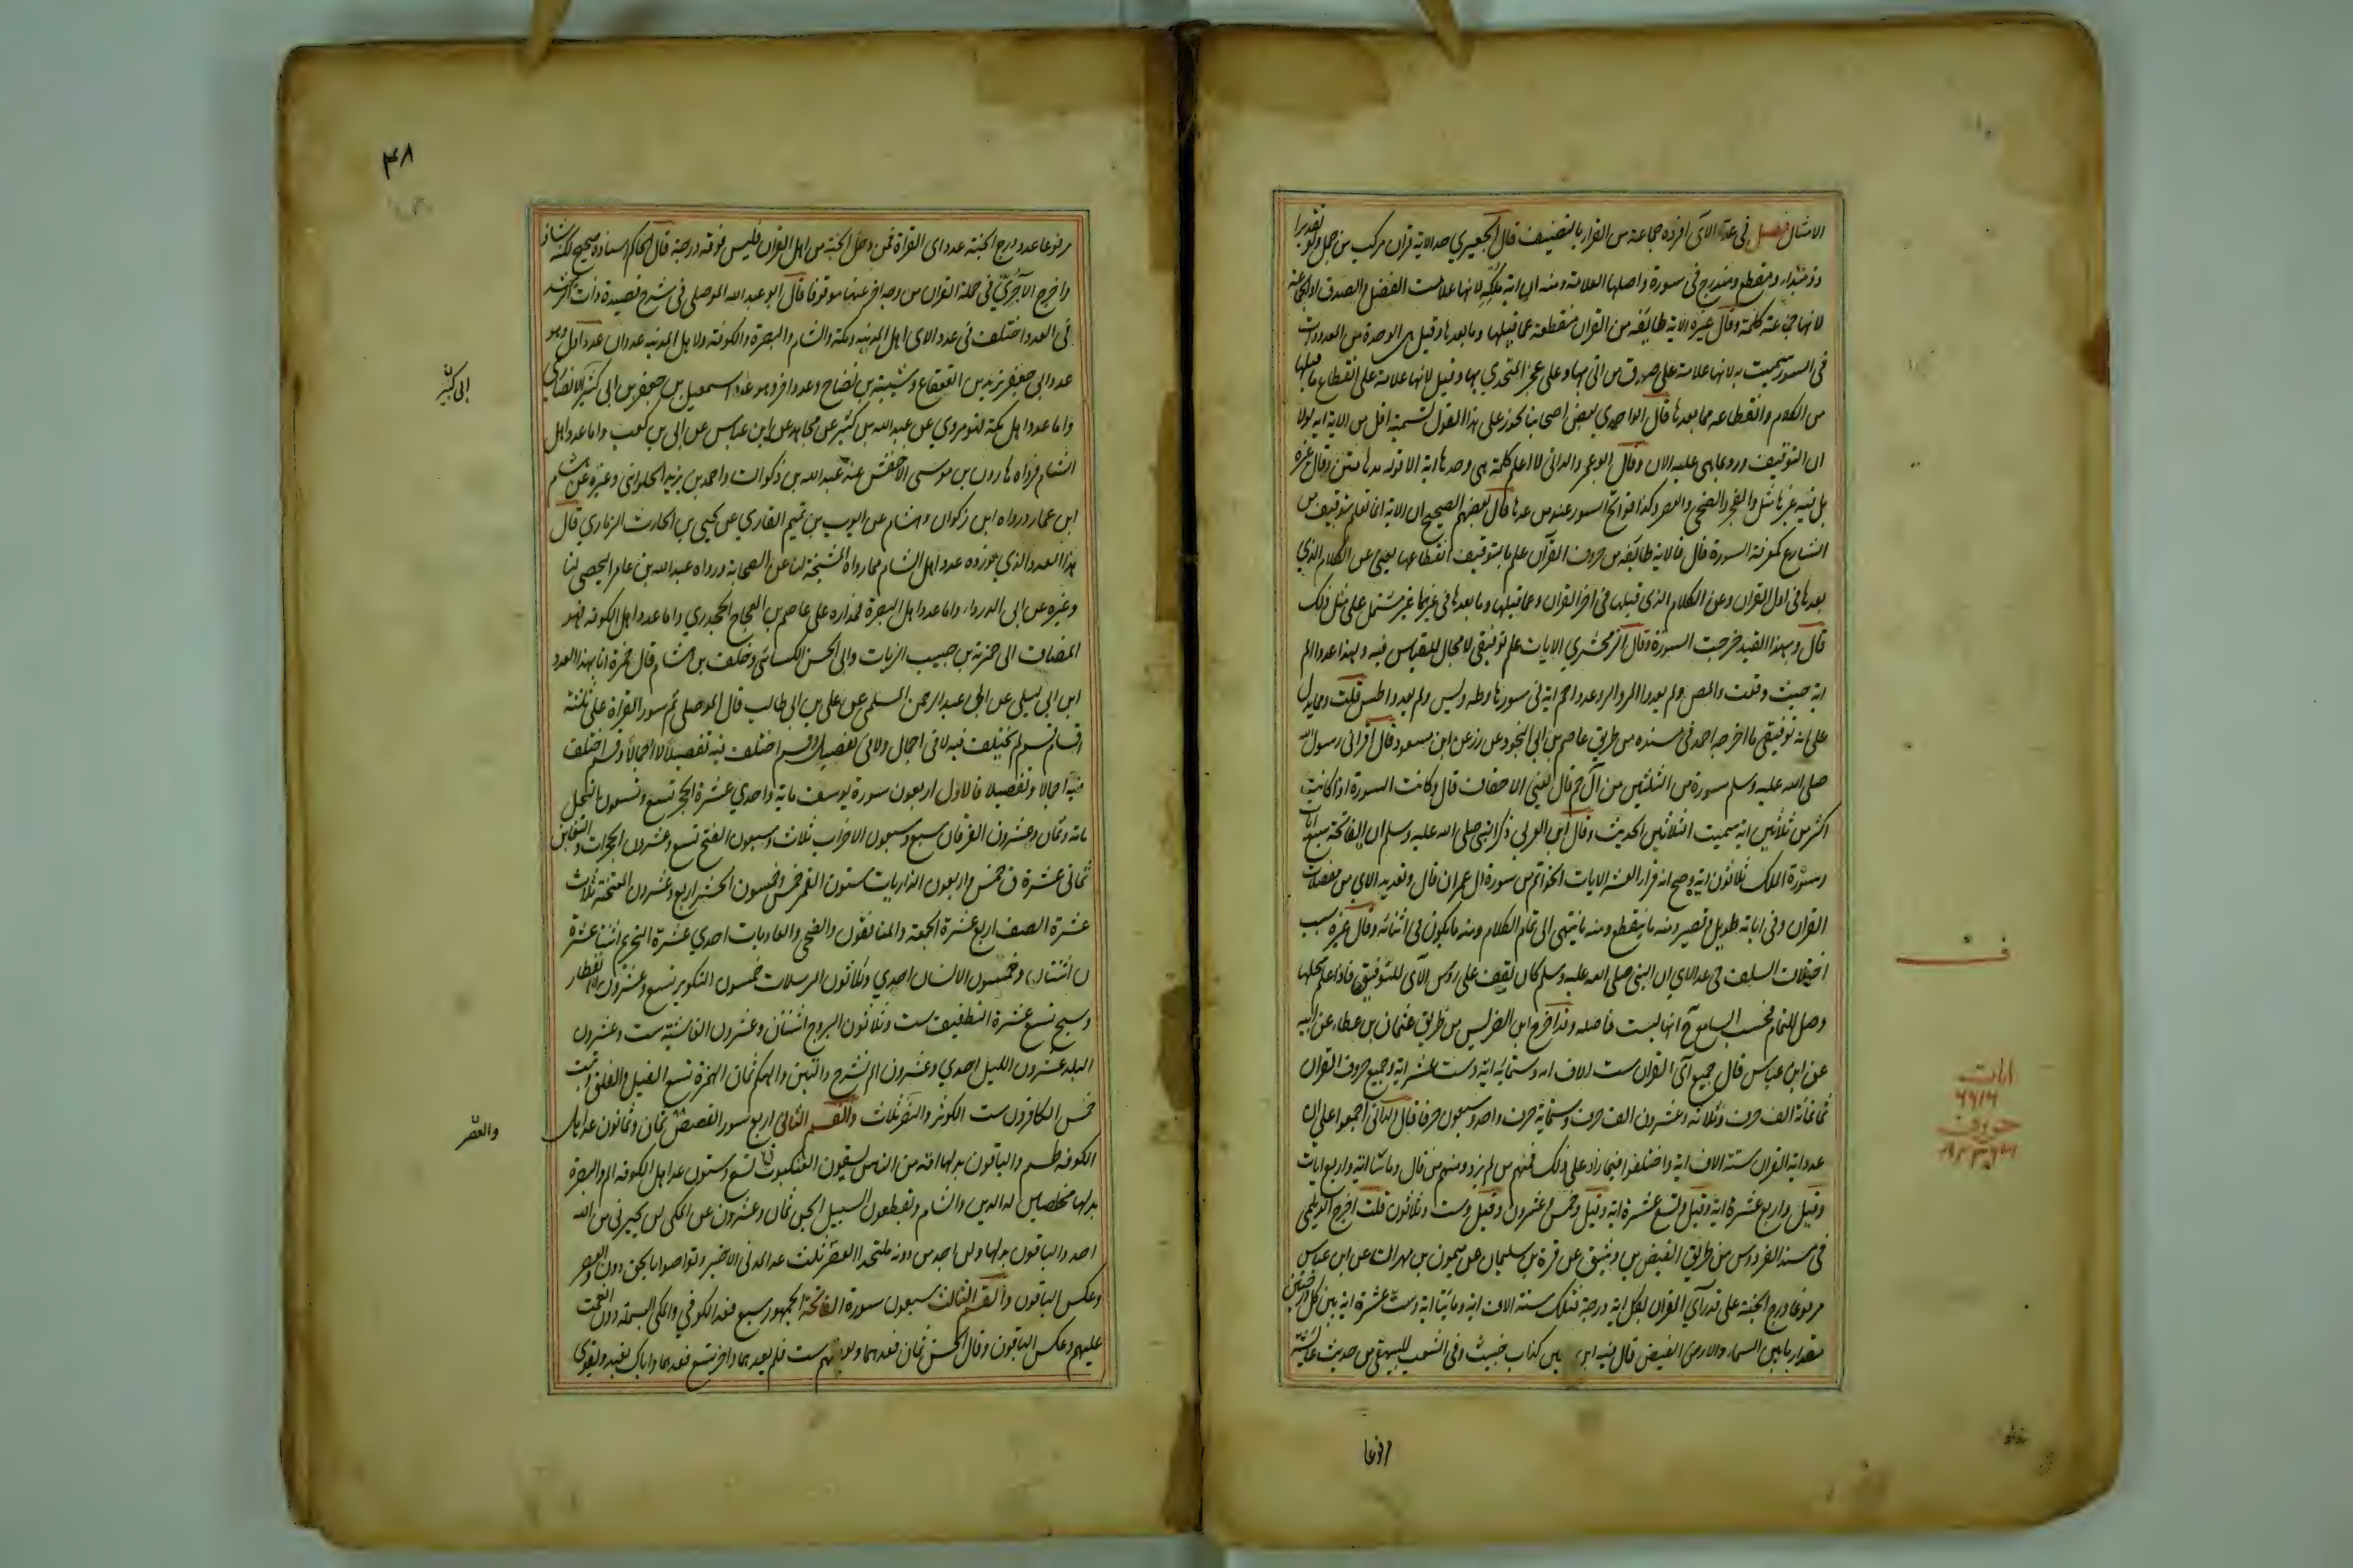 الامثال فصل في عد الاى افرده جماعة من القراء بالتصنيف قال الجعبري حد الاية قران مركب من جمل ولو تقديرا
ذو مبداء ومقطع ومندرج في سورة واصلها العلامة ومنه ان اية ملكه لانها علامة الفضل والصدق او الجماعة
لانها جماعة كلمة وقال غيره الاية طايفة من القران منقطعة عما قبلها وما بعدها وقيل هي الوحدة من المعدودات
في السور سميت به لانها علامة على صدق من اتى بها وعلى عجز المتحدي بها وقيل لانها علامة على انقطاع ما قبلها
من الكلام وانقطاعه مما بعدها قال الواحدي بعض اصحابنا يجوز على هذا القول تسمية اقل من الاية اية لولا
ان التوقيف ورد بما هي عليه الان وقال ابو عمرو الداني لا اعلم كلمة هي وحدها اية الا قوله مدهامتن وقال غيره
بل فيه غيرها مثل والفجر والضحى والعصر وكذا فواتح السور عند من عدها قال بعضهم الصحيح ان الاية انما تعلم بتوقيف من
الشارع كمعرفة السورة قال فالاية طايفة من حروف القرآن علم بالتوقيف انقطاعها يعني عن الكلام الذي
بعدها في اول القران وعن الكلام الذي قبلها في اخر القران وعما قبلها وما بعدها في غيرهما غير مشتمل على مثل ذلك
قال وبهذا القيد خرجت السورة وقال الزمخشري الايات علم توقيفي لا مجال للقياس فيه ولهذا عدوا الم
اية حيث وقعت والمص ولم يعدوا المر والر وعدوا حم اية في سورها وطه ويس ولم يعدوا طس قلت ومما يدل
على انه توقيفي ما اخرجه احمد في مسنده من طريق عاصم بن ابي النجود عن زر عن ابن مسعود قال اقراني رسول الله
صلى الله عليه وسلم سورة من الثلثين من آل حم قال يعني الاحقاف قال وكانت السورة اذا كانت
اكثر من ثلاثين اية سميت الثلاثين الحديث وقال ابن العربي ذكر النبي صلى الله عليه وسلم ان الفاتحة سبع ايات
وسورة الملك ثلاثون اية وصح انه قراء العشر الايات الخواتم من سورة ال عمران قال وتعديد الاي من معضلات
القران وفي اياته طويل وقصير ومنه ما ينقطع ومنه ما ينتهي الى تمام الكلام ومنه ما يكون في اثنائه وقال غيره سبب
اختلاف السلف في عد الاي ان النبي صلى الله عليه وسلم كان يقف على روس الآي للتوقيف فاذا علم محلها
وصل للتمام فيحسب السامع ح انها ليست فاصلة وقد اخرج ابن الضريس من طريق عثمان بن عطاء عن ابيه
عن ابن عباس قال جميع آي القران ست الاف اية وستمائة اية وست عشر اية وجميع حروف القران
ثمانمائة الف حرف وثلاثة وعشرون الف حرف وستماية حرف واحد وسبعون حرفا قال الداني اجمعوا على ان
عدد اية القران ستة الاف اية واختلفوا فيما زاد على ذلك فمنهم من لم يزد ومنهم من قال ومائتا اية واربع ايات
وقيل واربع عشرة اية وقيل وتسع عشرة اية وقيل وخمس وعشرون وقيل وست وثلاثون قلت اخرج الديلمي
في مسند الفردوس من طريق الفيض بن وثيق عن فرة بن سليمان عن ميمون بن مهران عن ابن عباس
مرفوعا درج الجنة على قدر آي القران بكل اية درجة فتلك ستة الاف اية ومايتا اية وست عشرة اية بين كل درجتين
مقدار ما بين السماء والارض الفيض قال فيه ابن معين كذاب خبيث وفي الشعب للبيهقي من حديث عايشة
ف
ايات
٦٦١٦
حروف
مرفوعا
٤٨
مرفوعا عدد درج الجنة عدد اى القراة فمن دخل الجنة من اهل القران فليس فوقه درجة قال الحاكم اسناده صحيح لكنه شاذ
واخرج الآجُرِّيُّ في حملة القران من وجه اخر عنها موقوفا قال ابو عبد الله الموصلي في شرح قصيدة ذات الرشد
في العدد اختلف في عدد الاى اهل المدينه ومكة والشام والبصرة والكوفة ولاهل المدينه عددان عدد اول وهو
عدد ابي جعفر يزيد بن القعقاع وشيبة بن نصاح وعدد اخر وهو عدد اسمعيل بن جعفر بن ابي كثير الانصاري
ابى كثير
واما عدد اهل مكة فهو مروي عن عبد الله بن كثير عن مجاهد عن ابن عباس عن ابي بن كعب واما عدد اهل
الشام فرواه هارون بن موسى الاخفش عنه عبد الله بن ذكوان واحمد بن يزيد الحلواني وغيره عن هشام
ابن عمار ورواه ابن ذكوان وهشام عن ايوب بن تميم القاري عن يحيى بن الحارث الزماري قال
هذا العدد الذي نورده عدد اهل الشام مما رواه المشيخة لنا عن الصحابة ورواه عبد الله بن عامر اليحصبي لنا
وغيره عن ابي الدرداء واما عدد اهل البصرة فمداره على عاصم بن العجاج الجحدري واما عدد اهل الكوفه فهو
المضاف الى حمزة بن حبيب الزيات وابي الحسن الكسائي وخلف بن هشام قال حمزة انا بهذا العدد
ابن ابي ليلى عن ابي عبد الرحمن السلمي عن علي بن ابي طالب قال الموصلي ثم سور القراة على ثلثة
اقسام قسم لم يختلف فيه لا في اجمال ولا في تفصيل وقسم اختلف فيه تفصيلا لا اجمالا وقسم اختلف
فيه اجمالا وتفصيلا فالاول اربعون سورة يوسف ماية واحدي عشرة الحجر تسع وتسعون النحل
ماية وثمان وعشرون الفرقان سبع وسبعون الاحزاب ثلاث وسبعون الفتح تسع وعشرون الحجرات والتغابن
ثماني عشرة ق خمس واربعون الذاريات ستون القمر خمس وخمسون الحشر اربع وعشرون الممتحنة ثلاث
عشرة الصف اربع عشرة الجمعة والمنافقون والضحى والعاديات احدي عشرة التحريم اثنتا عشرة
ن اثنتان وخمسون الانسان احدي وثلاثون المرسلات خمسون التكوير تسع وعشرون الانفطار
وسبح تسع عشرة التطفيف ست وثلاثون البروج اثنتان وعشرون الغاشية ست وعشرون
البلد عشرون الليل احدي وعشرون الم نشرح والتين والهكم ثمان الهمزة تسع الفيل والفلق وتبت
خمس الكافرون ست الكوثر والنصر ثلاث والقسم الثاني اربع سور القصص ثمان وثمانون عد اهل
والعصر
الكوفه طسم والباقون بدلها امة من الناس يسقون العنكبوت تسع وستون عد اهل الكوفه الم والبصرة
بدلها مخلصين له الدين والشام وتقطعون السبيل الجن ثمان وعشرون عن المكي لن يجيرني من الله
احد والباقون بدلها ولن اجد من دونه ملتحدا العصر ثلث عد المدني الاخير وتواصوا بالحق دون والعصر
وعكس الباقون والقسم الثالث سبعون سورة الفاتحة الجمهور سبع فعد الكوفي والمكي البسملة دون انعمت
عليهم وعكس الباقون وقال الحسن ثمان فعدهما وبعضهم ست فلم يعدهما واخر تسع فعدهما واياك نعبد ويقوى